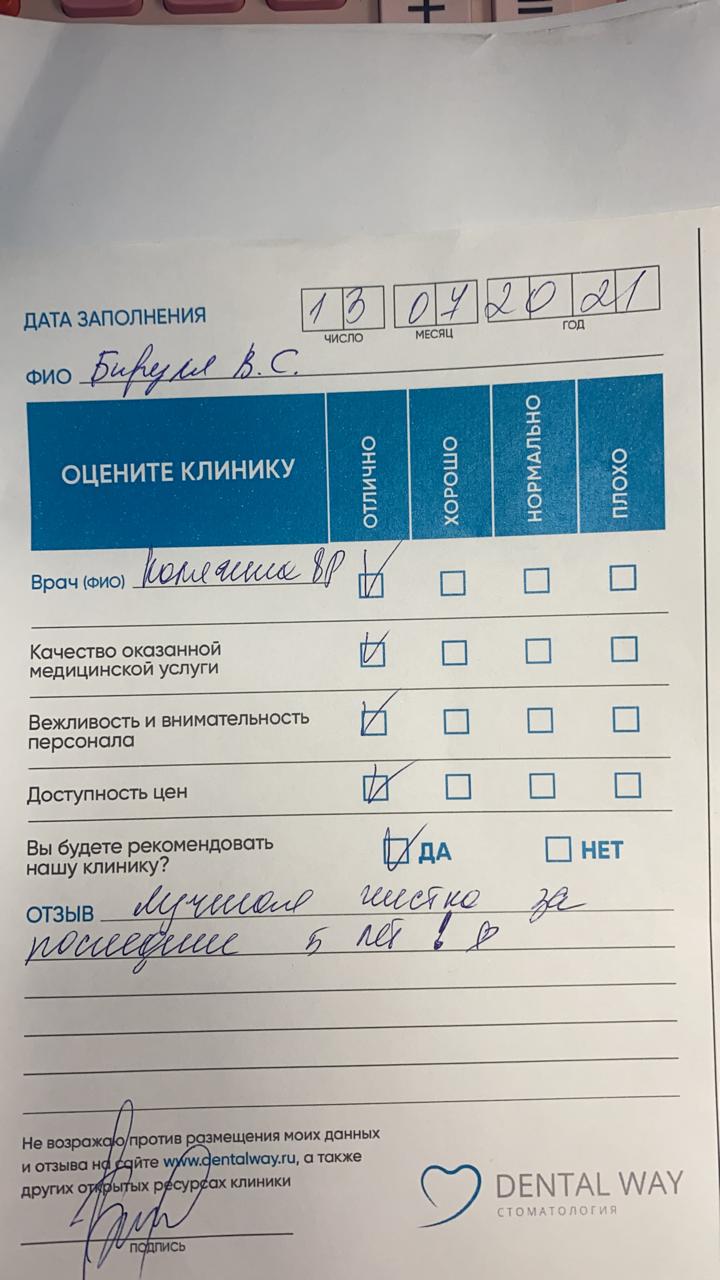 ДАТА ЗАПОЛНЕНИЯ 13 07 2021
ЧИСЛО МЕСЯЦ ГОД
ФИО Бируля В. С.
ОЦЕНИТЕ КЛИНИКУ ОТЛИЧНО ХОРОШО НОРМАЛЬНО ПЛОХО
Врач (ФИО)
Качество оказанной
медицинской услуги
Вежливость и внимательность
персонала
Доступность цен
Вы будете рекомендовать
нашу клинику? ДА НЕТ
ОТЗЫВ лучшая чистка за
последние 5 лет !
Не возражаю против размещения моих данных
и отзыва на сайте www.dentalway.ru, а также
других открытых ресурсах клиники
ПОДПИСЬ
DENTAL WAY
СТОМАТОЛОГИЯ